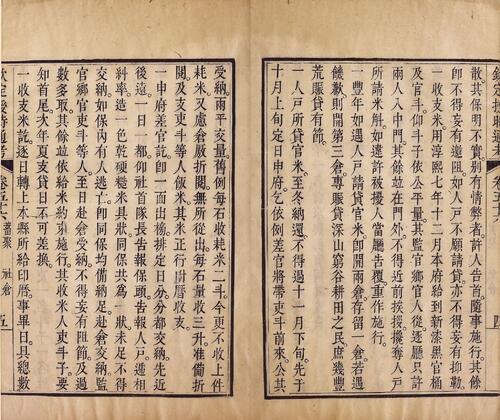 散。其保明不實。別有情弊者。許人告首。隨事施行。其餘
即不得妄有邀阻。如人戶不願請貸。亦不得妄有抑勒。
一收支米。用淳熙七年十二月本府給到新漆黑官桶
及官斗。仰斗子依公平量。其監官鄉官人從。逐廳只許
兩人入中門。其餘並在門外。不得近前挨拶攙奪人戶
所請米斛。如違許被擾人當廳告覆。重作施行。
一豐年如遇人戶請貸官米。即開兩倉。存留一倉。若遇
饑歉則開第三倉。專賑貸深山窮谷耕田之民。庶幾豐
荒賑貸有節。
一人戶所貸官米。至冬納還。不得過十一月下旬。先于
十月上旬定日申府。乞依例差官將帶吏斗前來。公共
受納。兩平交量。舊例每石收耗米二斗。今更不收上件
耗米。又慮倉厫折閱。無所從出。每石量收三升。准備折
閱。及支吏斗等人飯米。其米正行附曆收支。
一申府差官訖。即一面出榜。排定日分。分都交納。先近
後遠。一日一都。仰社首隊長告報保頭。告報人戶。遞相
糾率。造一色乾硬糙米具狀。同保共爲一狀。未足不得
交納。如保內有人逃亡。即同保均備納足。赴倉交納。監
官鄉官吏斗等人。至日赴倉受納。不得妄有阻節。及過
數多取。其餘並依給米約束施行。其收米人吏斗子。要
知首尾。次年夏支貸日。不可差換。
一收支米訖。逐日轉上本縣所給印曆。事畢日。具總數
欽定授時通考 卷五十六 蓄聚 社倉 五